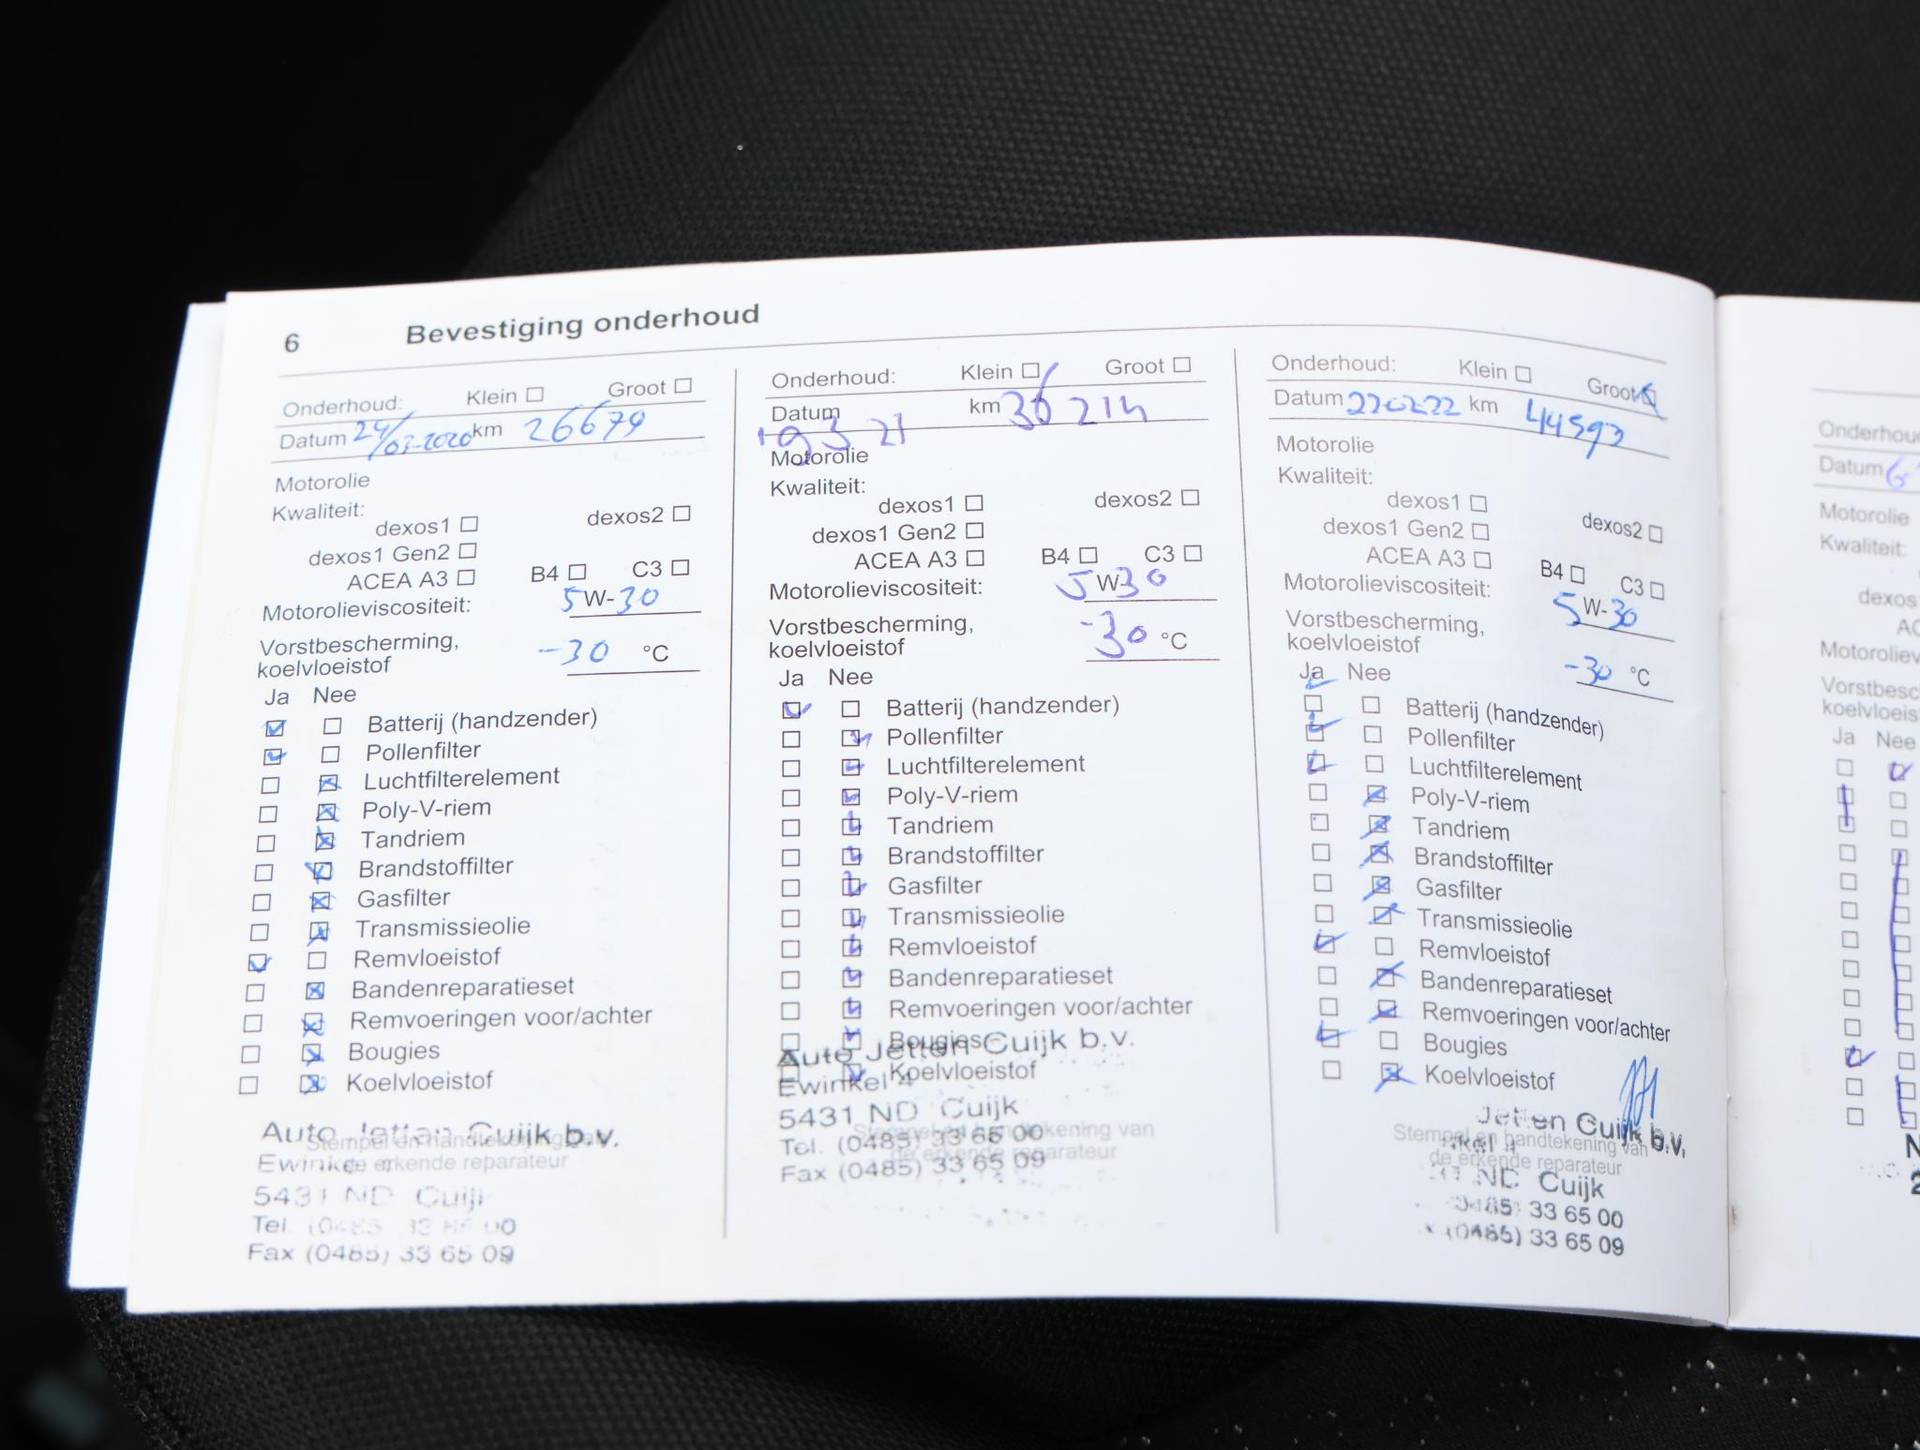 6 Bevestiging onderhoud
Onderhoud: Klein Groot
Datum km 26679
Motorolie
Kwaliteit:
dexos1 dexos2
dexos1 Gen2
ACEA A3 B4 C3
Motorolieviscositeit: 5W-30
Vorstbescherming,
koelvloeistof -30 °C
Ja Nee
Batterij (handzender)
Pollenfilter
Luchtfilterelement
Poly-V-riem
Tandriem
Brandstoffilter
Gasfilter
Transmissieolie
Remvloeistof
Bandenreparatieset
Remvoeringen voor/achter
Bougies
Koelvloeistof
Auto Jetten Cuijk b.v.
Stempel en handtekening van
de erkende reparateur
5431 ND Cuijk
Tel.
Fax (0485) 33 65 09
Onderhoud: Klein Groot
Datum km 36214
19 3 21
Motorolie
Kwaliteit:
dexos1 dexos2
dexos1 Gen2
ACEA A3 B4 C3
Motorolieviscositeit: 5W-30
Vorstbescherming,
koelvloeistof -30 °C
Ja Nee
Batterij (handzender)
Pollenfilter
Luchtfilterelement
Poly-V-riem
Tandriem
Brandstoffilter
Gasfilter
Transmissieolie
Remvloeistof
Bandenreparatieset
Remvoeringen voor/achter
Bougies
Auto Jetten Cuijk b.v.
Koelvloeistof
Ewinkel 4
5431 ND Cuijk
Stempel en handtekening van
Tel. (0485) 33 65 00
de erkende reparateur
Fax (0485) 33 65 09
Onderhoud: Klein Groot
Datum 220222 km 44592
Motorolie
Kwaliteit:
dexos1 dexos2
dexos1 Gen2
ACEA A3 B4 C3
Motorolieviscositeit: 5W-30
Vorstbescherming,
koelvloeistof -30 °C
Ja Nee
Batterij (handzender)
Pollenfilter
Luchtfilterelement
Poly-V-riem
Tandriem
Brandstoffilter
Gasfilter
Transmissieolie
Remvloeistof
Bandenreparatieset
Remvoeringen voor/achter
Bougies
Koelvloeistof
Jetten Cuijk b.v.
Stempel en handtekening van
de erkende reparateur
ND Cuijk
33 65 00
(0485) 33 65 09
Datum
Motorolie
Kwaliteit:
Ja Nee